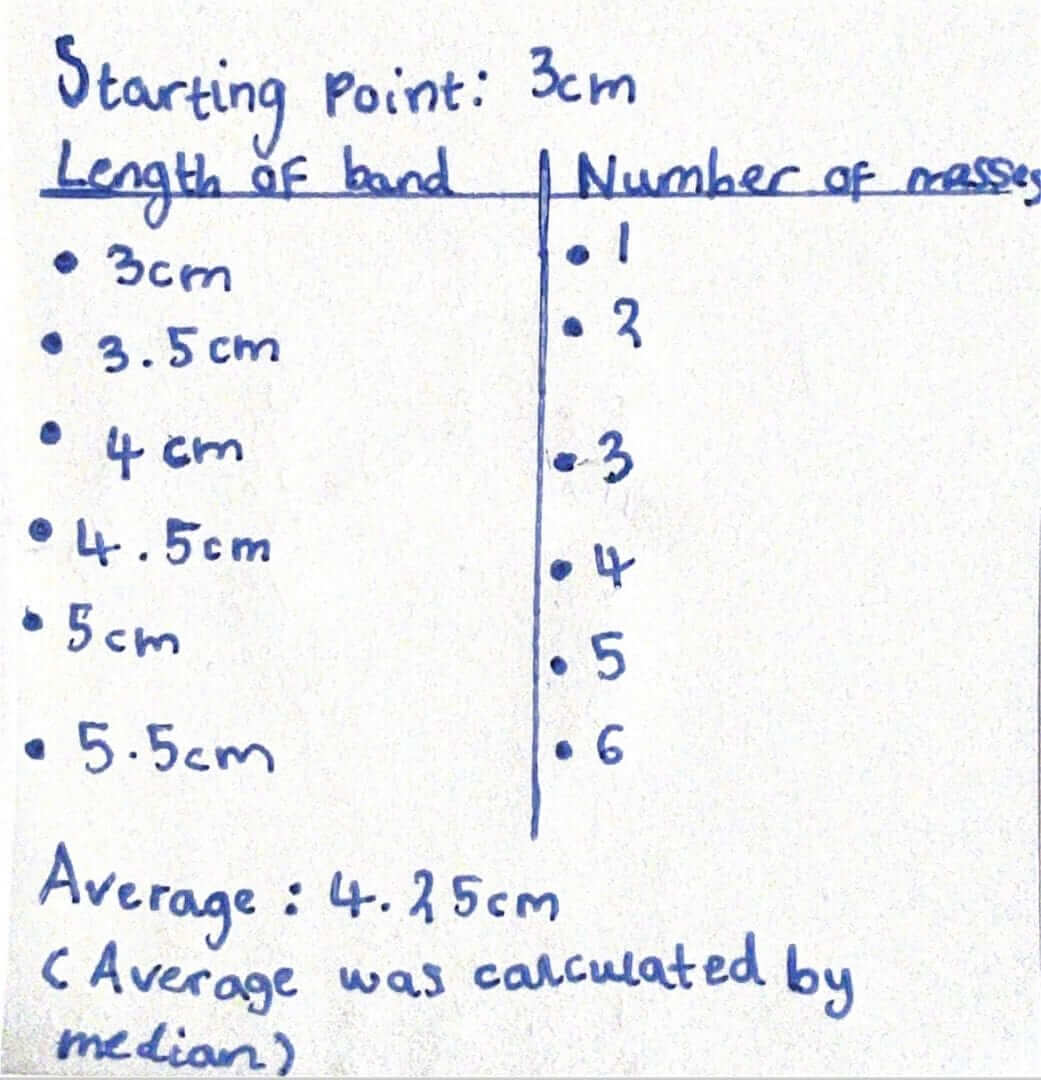 Starting Point: 3cm
Length of band | Number of masses
• 3cm • 1
• 3.5cm • 2
• 4cm • 3
• 4.5cm • 4
• 5cm • 5
• 5.5cm • 6
Average: 4.25cm
(Average was calculated by
median)